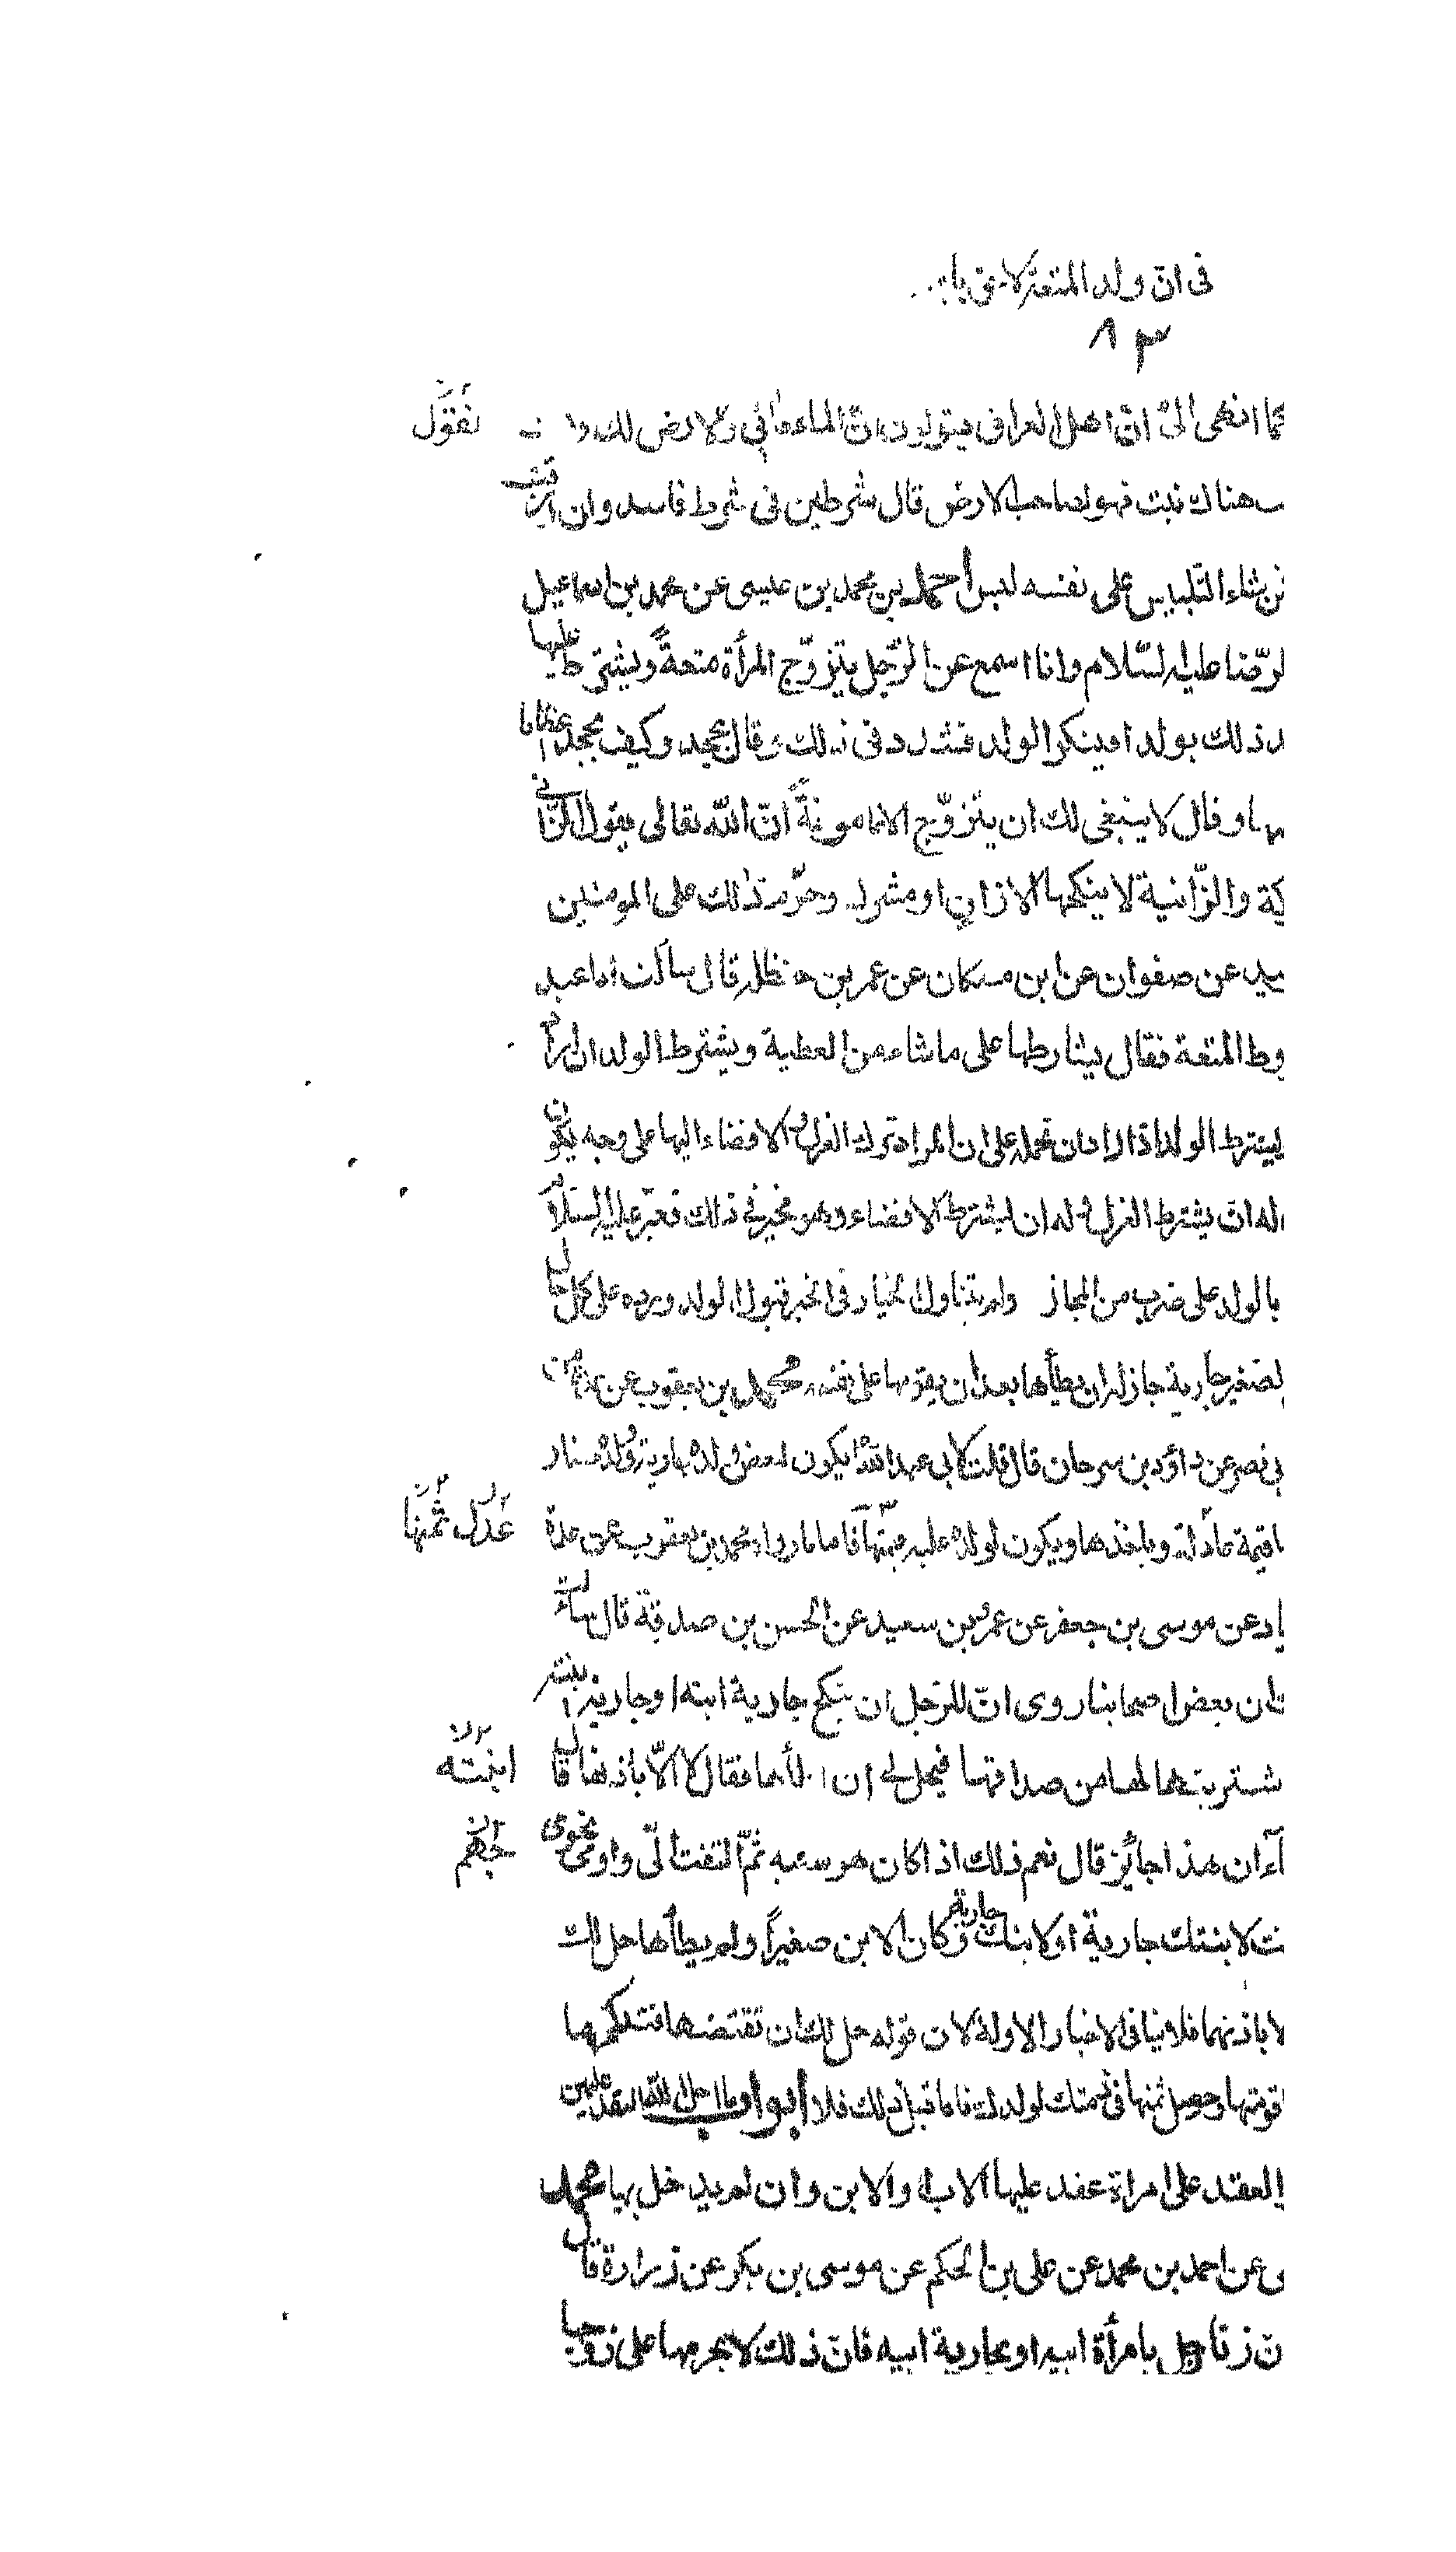 فى انّ ولد المتعة لاحق بابيه
٨٣
انهى الىّ انّ اهل العراق يقولون انّ الماء مائى والارض لك
نقول
هناك نبت فهو لصاحب الارض قال شرطين فى شرط فاسد وان
شاء التلبيس على نفسه لبس احمد بن محمد بن عيسى عن محمد بن اسماعيل
الرّضا عليه السّلام وانا اسمع عن الرّجل يتزوّج المرأة متعةً ويشترط عليها
ذلك بولد اوينكر الولد فشدد فى ذلك وقال يجحد وكيف يجحد اعظاما
وقال لا ينبغى لك ان يتزوّج الا مامونةً انّ الله تعالى يقول الزّانى
والزّانية لا ينكحها الا زان او مشرك وحرّم ذلك على المومنين
عن صفوان عن ابن مسكان عن عمر بن حنظله قال سالت ابا عبد
المتعة فقال يشارطها على ما شاء من العطية ويشترط الولد ان اراد
الولد اذا اراد ان نحمله على ان المراد ترك العزل والافضاء اليها على وجه يكون
له ان يشترط العزل وله ان يشترط الافضاء وهو مخير فى ذلك فعبّر عليه السّلام
بالولد على ضرب من المجاز ولم يتناول الخيار فى الخبر قبول الولد ورده على كل حال
جارية جاز له ان يطأها بعد ان يقومها على نفسه محمد بن يعقوب عن
عن داؤد بن سرحان قال قلت لابى عبد الله يكون لبعض ولده جارية وولده صغار
قيمة عادلة وياخذها ويكون لولده عليه ثمنها فاما ما رواه محمد بن يعقوب عن عدة
عدل ثمنها
عن موسى بن جعفر عن عمرو بن سعيد عن الحسن بن صدقة قال سالت
ان بعض اصحابنا روى انّ للرّجل ان ينكح جارية ابنه او جارية ابنته
اشتريتها لها من صداقها فيحل لى ان اطأها فقال لا الّا باذنها قال
ابنته
ان هذا جائز قال نعم ذلك اذا كان هو سببه ثمّ التفت الىّ واومى نحوى
لابنتك جارية او لابنك جارية وكان الابن صغيرًا ولم يطأها حل لك
باذنهما فلا ينافى الاخبار الاولة لان قوله حل لك ان تقتضها فتنكحها
قومتها وحصل ثمنها فى ذمتك لولدك فاما قبل ذلك فلا ابواب ما احل الله العقد عليهن
العقد على امراة عقد عليها الاب او الابن وان لم يدخل بها محمد
عن احمد بن محمد عن على بن الحكم عن موسى بن بكر عن زرارة قال
ن زنا رجل بامرأة ابيه او بجارية ابيه فانّ ذلك لا يحرمها على زوجها